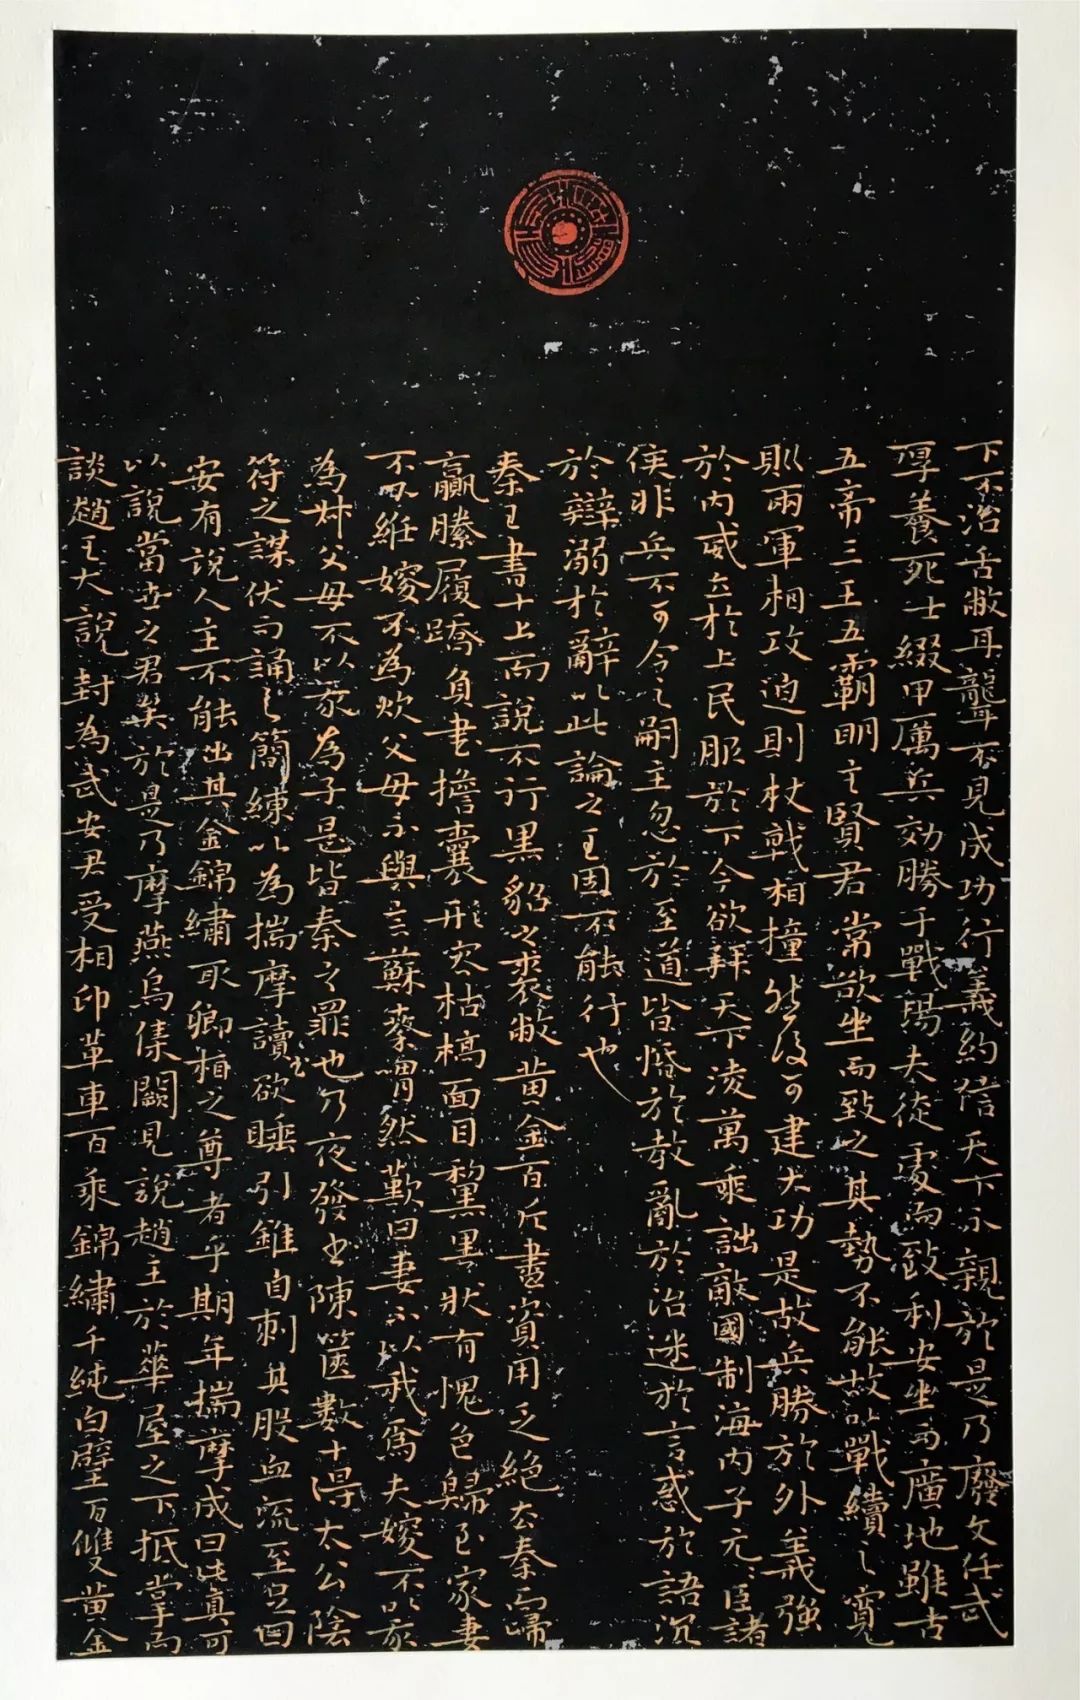 下不治舌敝耳聾不見成功行義約信天下不親於是乃廢文任武
厚養死士綴甲厲兵効勝于戰場夫徒處而致利安坐而廣地雖古
五帝三王五霸明主賢君常欲坐而致之其勢不能故以戰續之寬
則兩軍相攻迫則杖戟相撞然後可建大功是故兵勝於外義強
於內威立於上民服於下今欲拜天下淩萬乘詘敵國制海內子元元臣諸
侯非兵不可今之嗣主忽於至道皆惛於教亂於治迷於言惑於語沉
於辯溺於辭以此論之王固不能行也
秦王書十上而說不行黑貂之裘敝黃金百斤盡資用乏絕去秦而歸
羸縢履蹻負書擔囊形容枯槁面目犂黑狀有愧色歸至家妻
不下紝嫂不為炊父母不與言蘇秦喟然歎曰妻不以我為夫嫂不以我
為叔父母不以我為子是皆秦之罪也乃夜發書陳篋數十得太公陰
符之謀伏而誦之簡練以為揣摩讀書欲睡引錐自刺其股血流至足曰
安有說人主不能出其金錦繡取卿相之尊者乎期年揣摩成曰此真可
以說當世之君矣於是乃摩燕烏集闕見說趙王於華屋之下抵掌而
談趙王大說封為武安君受相印革車百乘錦繡千純白璧百雙黃金